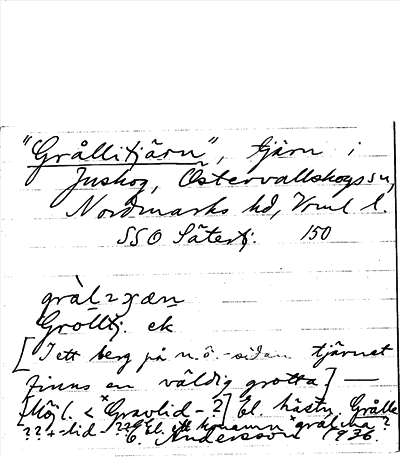 "Grållitjärn", tjärn i
Juskog, Östervallskogs sn,
Nordmarks hd, Vrml l.
SSO Sätertj. 150
Grölltj. ek
[I ett berg på n.ö.-sidan tjärnet
finns en väldig grotta] —
[Möjl. < *Gravlid-?] El. hästn. Grålle
??+-lid-?? El. ett konamn
E. Andersson 1936.